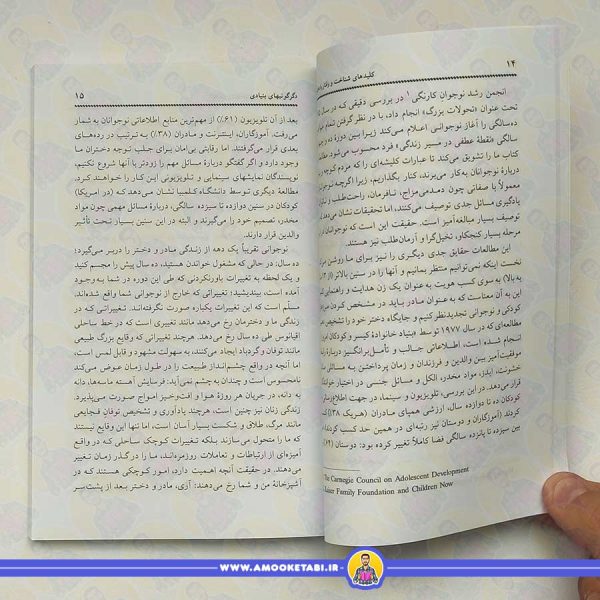 ۱۴
کلیدهای شناخت و رفتار با
انجمن رشد نوجوان کارنگی ۱ در بررسی دقیقی که در سال
تحت عنوان «تحولات بزرگ» انجام داد، با در نظر گرفتن تمام
ده‌سالگی را آغاز نوجوانی اعلام می‌کند زیرا بین دوزه ده و
سالگی «نقطهٔ عطفی در مسیر زندگی» فرد محسوب می‌شود. مطالعهٔ
کتاب ما را تشویق می‌کند تا عبارات کلیشه‌ای را که مردم کوچه و
دربارهٔ نوجوانان به‌کار می‌برند، کنار بگذاریم، زیرا اگرچه نوجوانان
معمولاً با صفاتی چون دمدمی‌مزاج، نافرمان، راحت‌طلب و
یادگیری مسائل جدی توصیف می‌کنند، اما تحقیقات نشان می‌دهد
توصیف بسیار مبالغه‌آمیز است. حقیقت این است که نوجوانان در این
مرحله بسیار کنجکاو، تخیل‌گرا و آرمان‌طلب نیز هستند.
این مطالعات حقایق جدی دیگری را نیز برای ما روشن
نخست اینکه نمی‌توانیم منتظر بمانیم و آنها را در سنین بالاتر
به بالا) به سوی کسب هویت به عنوان یک زن هدایت و راهنمایی
این به آن معناست که به عنوان مادر باید در مشخص کردن
کودکی و نوجوانی تجدیدنظر کنیم و جایگاه دختر خود را تشخیص
مطالعه‌ای که در سال ۱۹۷۷ توسط «بنیاد خانوادهٔ کیسر و کودکان
انجام شده است، اطلاعاتی جالب و تأمل‌برانگیز دربارهٔ
موفقیت‌آمیز بین والدین و فرزندان و زمان پرداختن به مسائلی
خشونت، ایدز، مواد مخدر، الکل و مسائل جنسی در اختیار خوانندگان
قرار می‌دهد. در این بررسی، تلویزیون و سینما، در جهت اطلاع‌رسانی
کودکان ده تا دوازده سال، ارزشی همپای مادران (هریک ۳۸٪)
کردند (آموزگاران و دوستان نیز رتبه‌ای در همین حد کسب کردند)
بین سیزده تا پانزده سالگی فضا کاملاً تغییر کرده بود: دوستان (۶۴٪)
The Carnegie Council on Adolescent Development
Kaiser Family Foundation and Children Now
دگرگونیهای بنیادی
۱۵
بعد از آن تلویزیون (۶۱٪) از مهم‌ترین منابع اطلاعاتی نوجوانان به شمار
می‌رفت. آموزگاران، اینترنت و مادران (۳۸٪) به ترتیب در رده‌های
بعدی قرار می‌گرفتند. اما رقابتی بی‌امان برای جلب توجه دختران ما
وجود دارد و اگر گفتگو دربارهٔ مسائل مهم را زودتر با آنها شروع نکنیم،
نویسندگان نمایشهای سینمایی و تلویزیونی این کار را خواهند کرد.
مطالعهٔ دیگری توسط دانشگاه کلمبیا نشان می‌دهد که (در امریکا)
کودکان در سنین دوازده تا سیزده سالگی، دربارهٔ مسائل مهمی چون مواد
مخدر، تصمیم خود را می‌گیرند و البته در این سنین بسیار تحت تأثیر
والدین قرار دارند.
نوجوانی تقریباً یک دهه از زندگی مادر و دختر را دربر می‌گیرد؛
ده سال: در حالی که مشغول خواندن هستید، ده سال پیش را مجسم کنید
و یک لحظه به تغییرات باورنکردنی که طی این دوره در شما به وجود
آمده است، بیندیشید؛ تغییراتی که خارج از نوجوانی شما واقع شده‌اند،
مسلّم است که این تغییرات یکباره صورت نگرفته‌اند. تغییراتی که در
زندگی ما و دخترمان رخ می‌دهد مانند تغییری است که در خط ساحلی
اقیانوس طی ده سال رخ می‌دهد. هرچند تغییراتی که وقایع بزرگ طبیعی
مانند توفان و گردباد ایجاد می‌کنند، به سهولت مشهود و قابل لمس است،
اما آنچه در واقع چشم‌انداز طبیعت را در طول زمان عوض می‌کند
نامحسوس است و چندان به چشم نمی‌آید. فرسایش آهسته ماسه‌ها، دانه
به دانه، در جریان هر روزهٔ هوا و افت‌وخیز امواج صورت می‌پذیرد.
زندگی زنان نیز چنین است، هرچند یادآوری و تشخیص توفان فجایعی
مانند مرگ، طلاق و شکست بسیار آسان است، اما تنها این وقایع نیستند
که ما را متحول می‌سازند بلکه تغییرات کوچک ساحلی که در واقع
آمیزه‌ای از ارتباطات و تعاملات روزمره‌اند، ما را در گذر زمان تغییر
می‌دهند. در حقیقت آنچه اهمیت دارد، امور کوچکی هستند که در
آشپزخانهٔ من و شما رخ می‌دهند: آری، مادر و دختر بعد از پشت‌سر
WWW.AMOOKETABI.IR